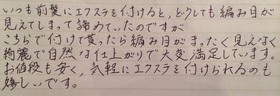 いつも前髪にエクステを付けると、どうしても編み目が
見えてしまって諦めていたのですが
こちらで付けて貰ったら編み目がまったく見えなく
綺麗で自然な仕上がりで大変満足しています。
お値段も安く、気軽にエクステを付けられるのも
嬉しいです。